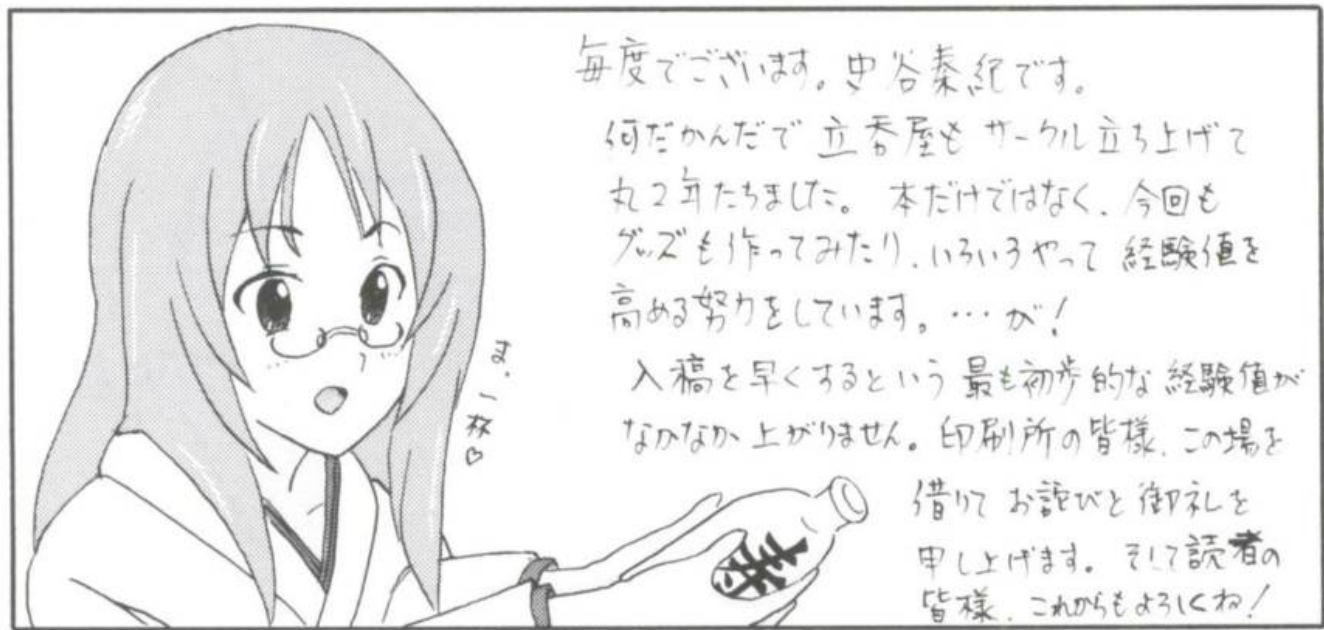 毎度でございます。史谷秦紀です。
何だかんだで立呑屋もサークル立ち上げて
丸2年たちました。本だけではなく、今回も
グッズも作ってみたり、いろいろやって経験値を
高める努力をしています。…が!
入稿を早くするという最も初歩的な経験値が
なかなか上がりません。印刷所の皆様、この場を
借りてお詫びと御礼を
申し上げます。そして読者の
皆様、これからもよろしくね!
ま、一杯♡
寿